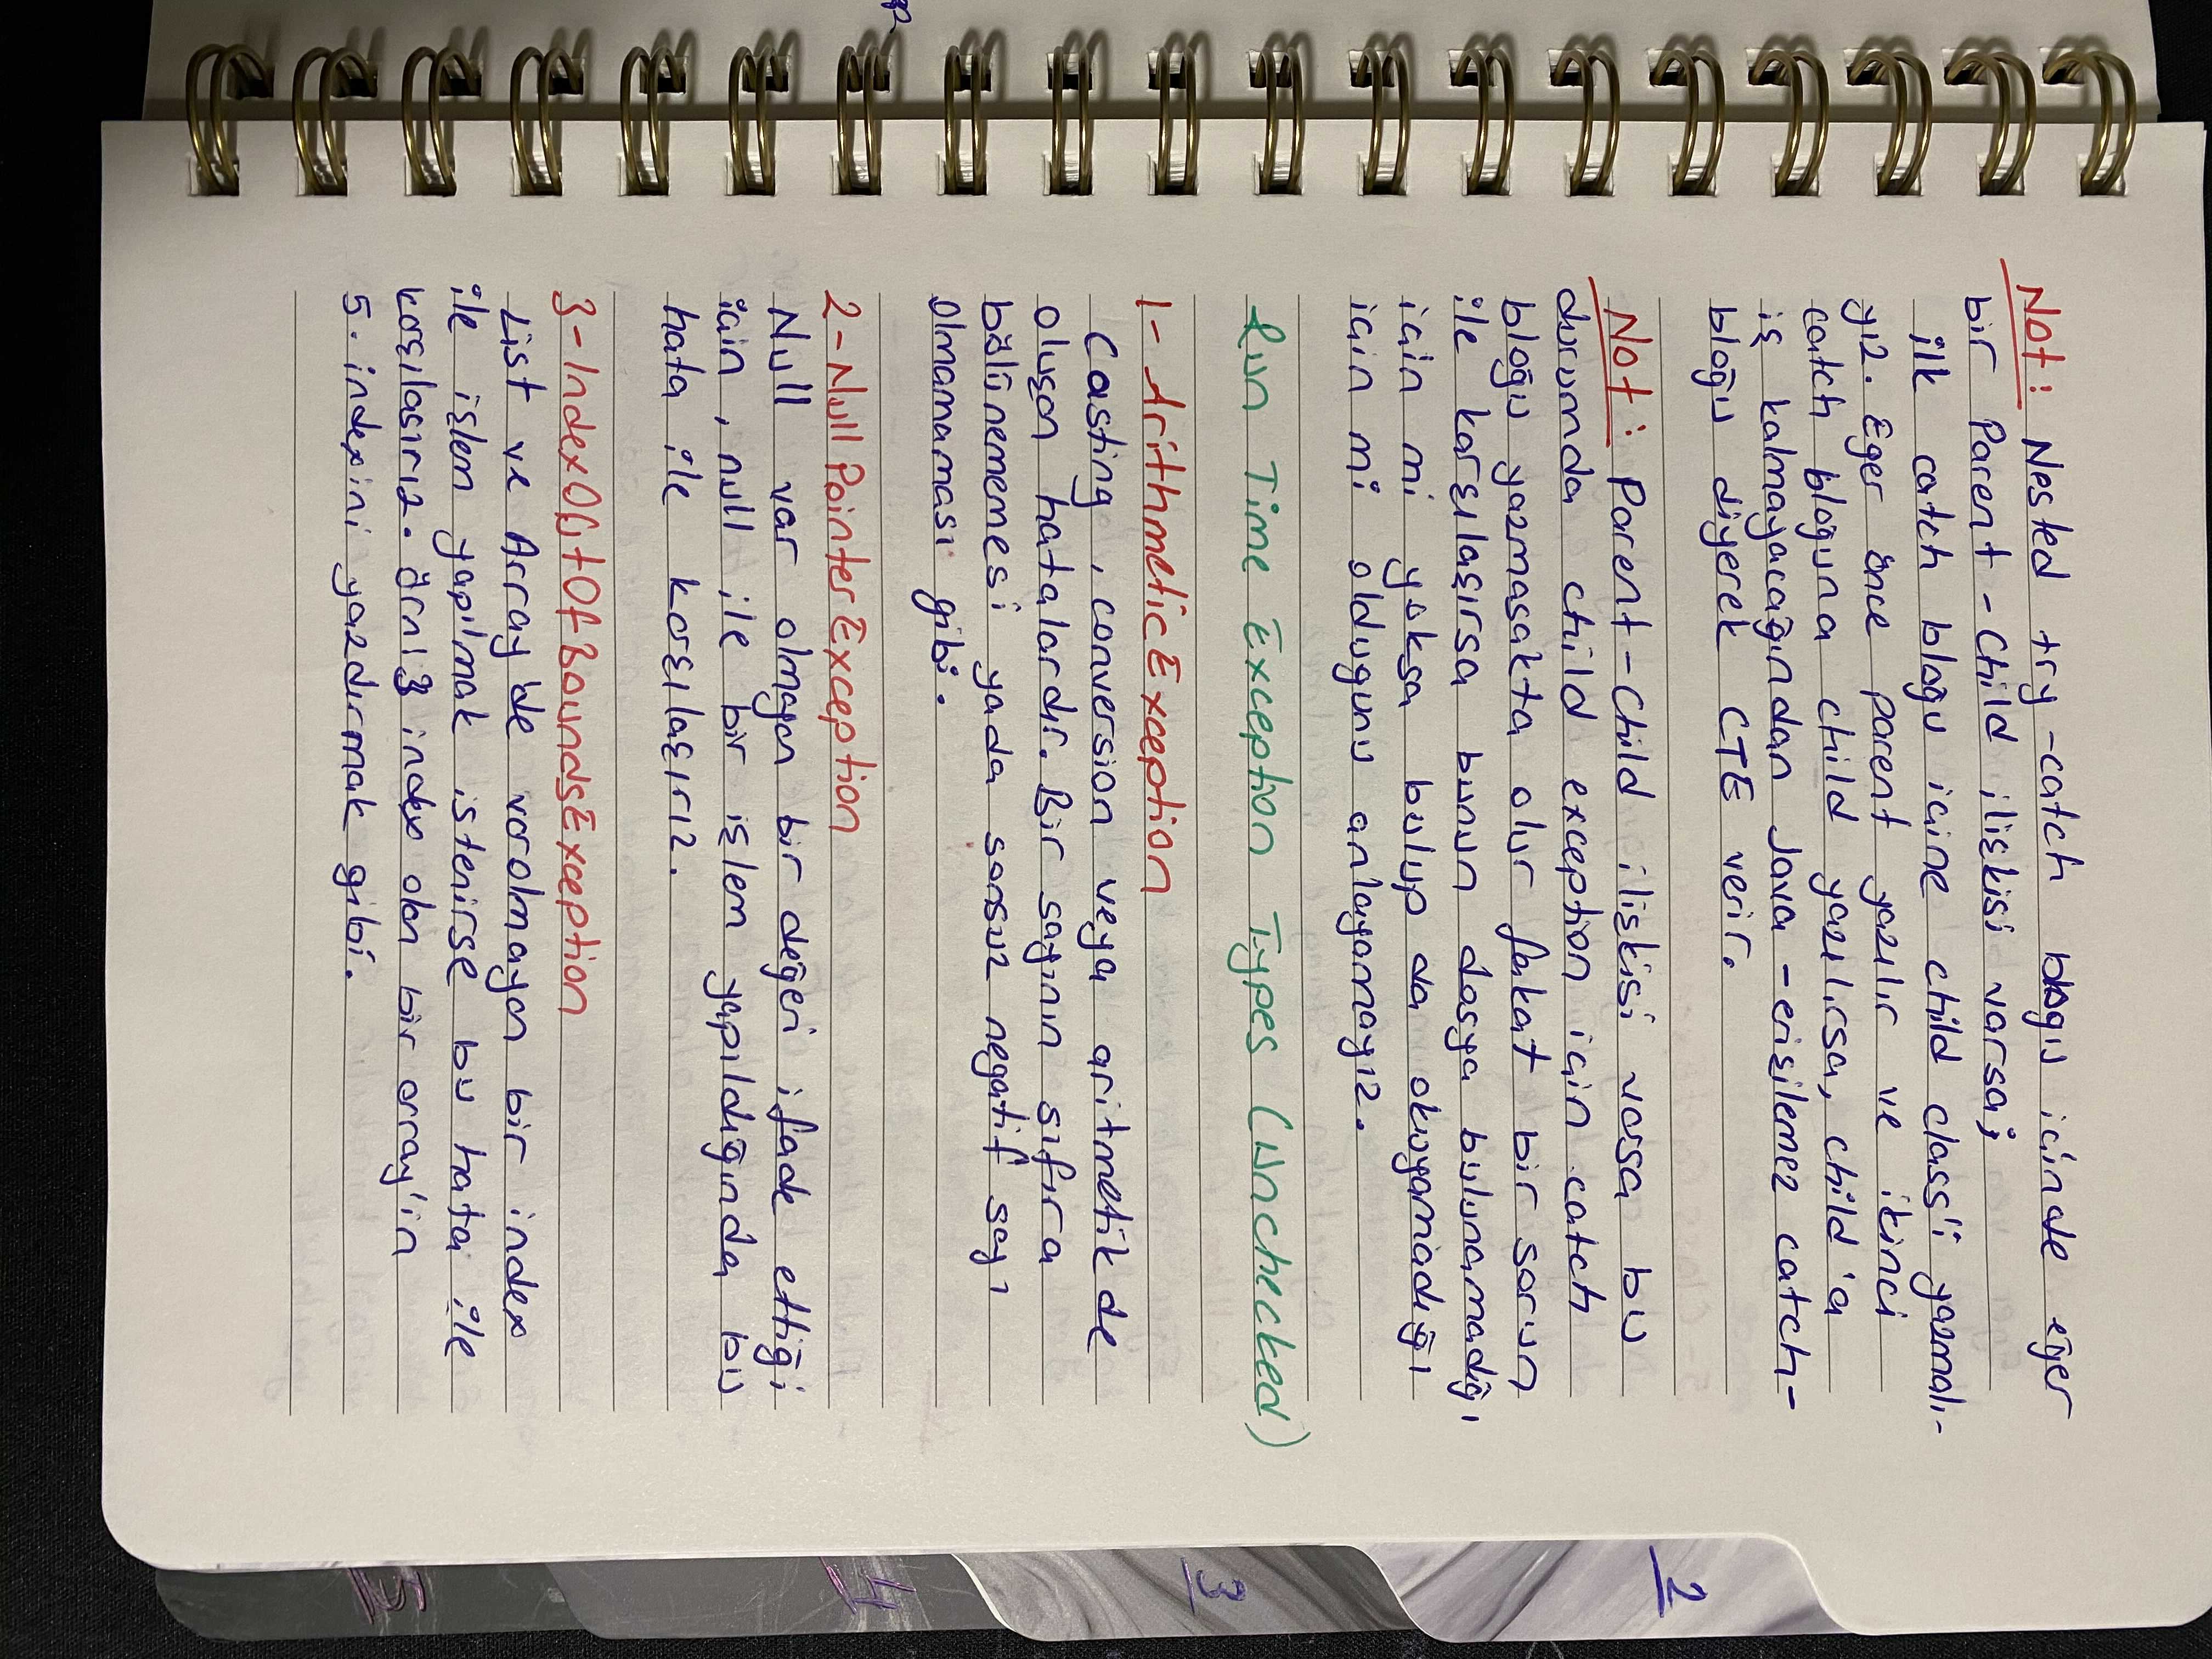 Not: Nested try-catch bloğu içinde eğer
bir Parent-Child ilişkisi varsa;
ilk catch bloğu içine child class'i yazmalı-
yız. Eger önce parent yazılır ve ikinci
catch bloğuna child yazılırsa, child'a
iş kalmayacağından Java -erişilemez catch-
bloğu diyerek CTE verir.
Not: Parent-Child ilişkisi varsa bu
durumda child exception için catch
bloğu yazmasakta olur fakat bir sorun
ile karşılaşırsa bunun dosya bulunamadığı
için mi yoksa bulup da okuyamadığı
için mi oldugunu anlayamayız.
Run Time Exception Types (Unchecked)
1- ArithmeticException
Casting, conversion veya aritmetik de
oluşan hatalardır. Bir sayının sıfıra
bölünememesi yada sonsuz negatif sayı
olmamaması gibi.
2-NullPointerException
Null var olmayan bir değeri ifade ettiği
için, null ile bir işlem yapıldığında bu
hata ile karşılaşırız.
3-IndexOutOfBoundsException
List ve Array'de varolmayan bir index
ile işlem yapılmak istenirse bu hata ile
karşılasırız. Örn! 3 index olan bir array'in
5. indexini yazdırmak gibi.
2
3
4
5